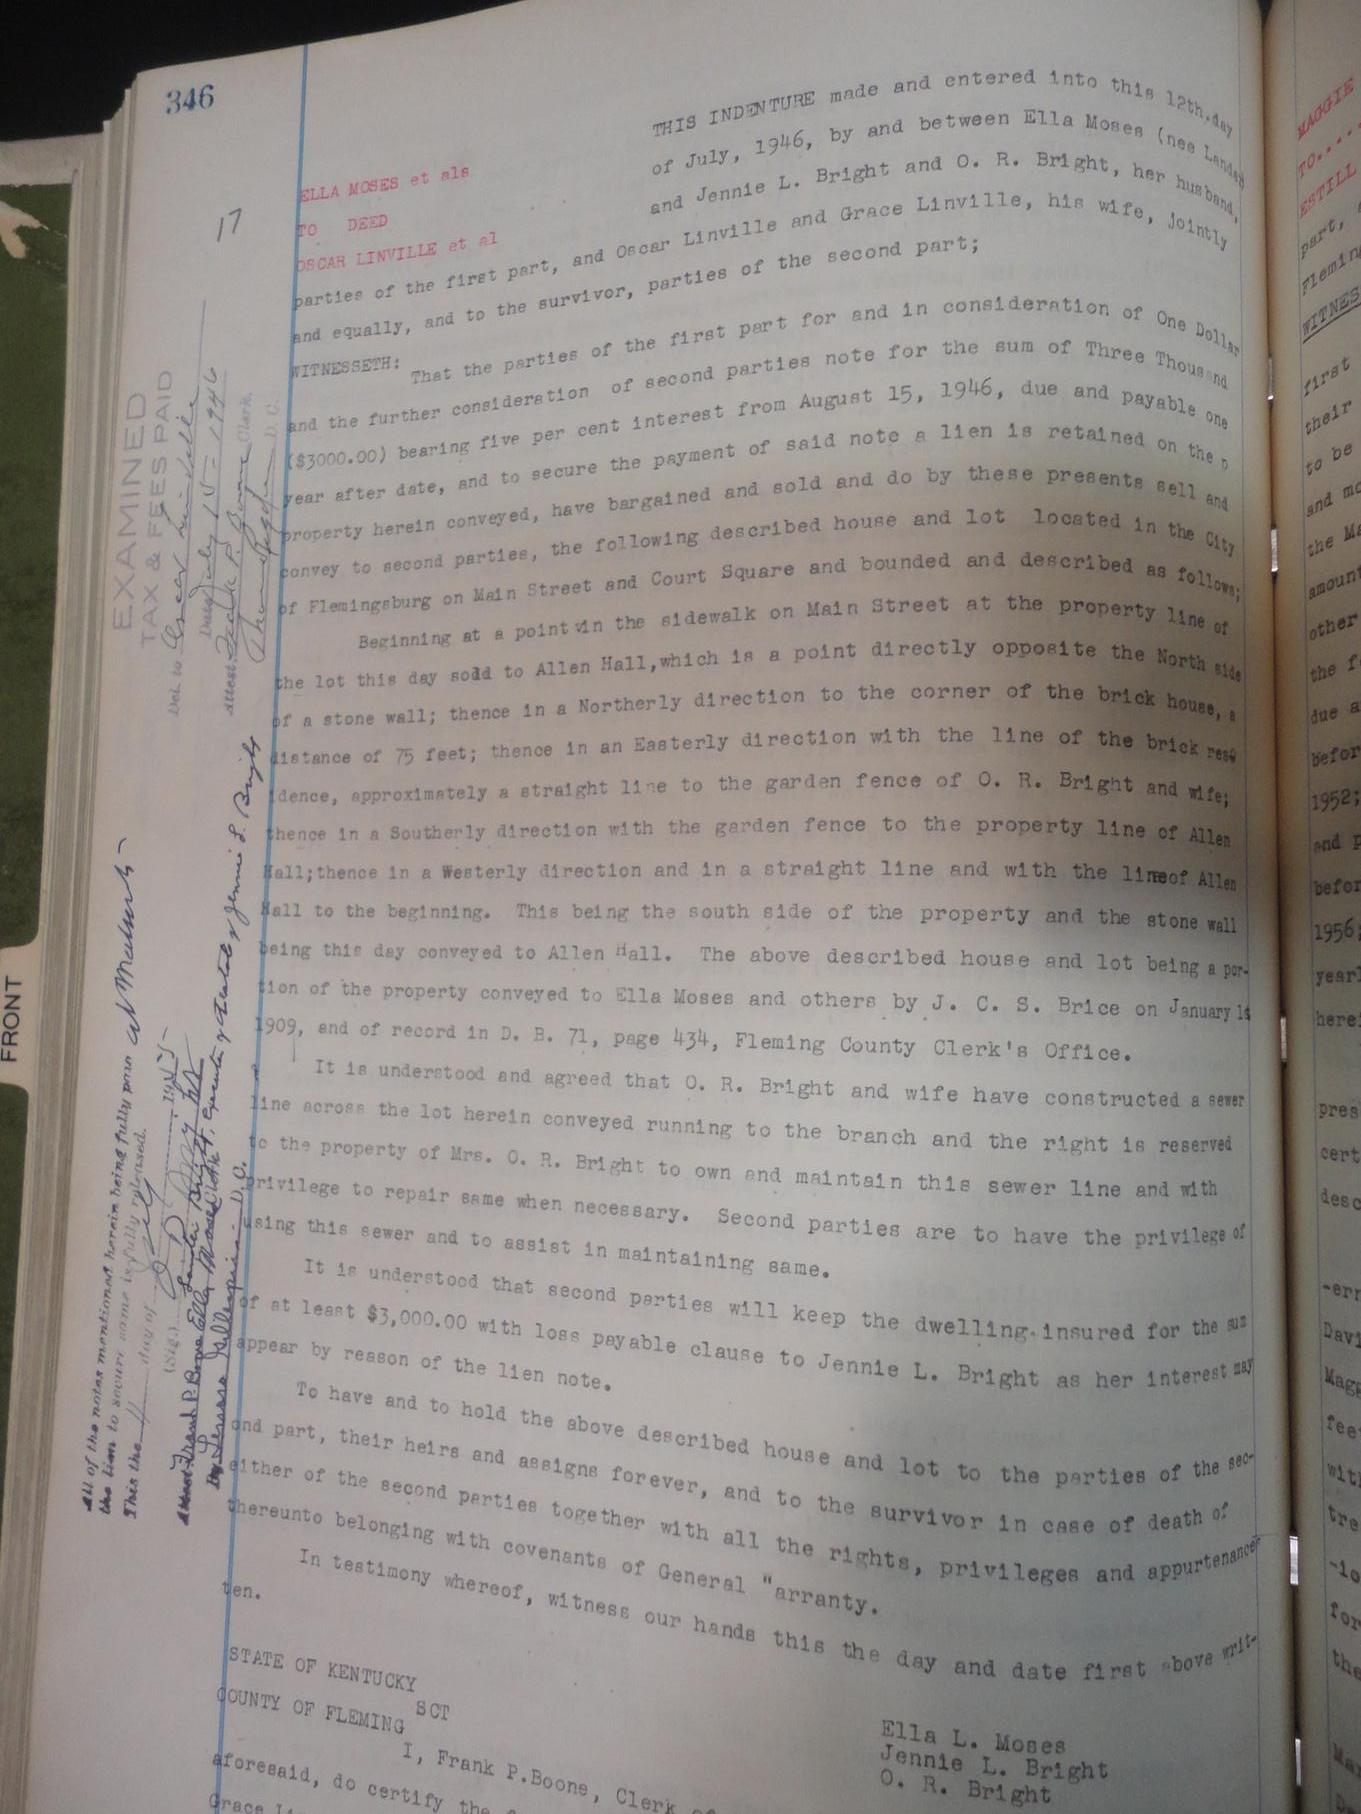 346
17
ELLA MOSES et als
TO DEED
OSCAR LINVILLE et al
THIS INDENTURE made and entered into this 12th.day
of July, 1946, by and between Ella Moses (nee
and Jennie L. Bright and O. R. Bright, her husband,
parties of the first part, and Oscar Linville and Grace Linville, his wife, jointly
and equally, and to the survivor, parties of the second part;
WITNESSETH: That the parties of the first part for and in consideration of One Dollar
and the further consideration of second parties note for the sum of Three Thousand
($3000.00) bearing five per cent interest from August 15, 1946, due and payable one
year after date, and to secure the payment of said note a lien is retained on the p
property herein conveyed, have bargained and sold and do by these presents sell and
convey to second parties, the following described house and lot located in the City
of Flemingsburg on Main Street and Court Square and bounded and described as follows;
Beginning at a point in the sidewalk on Main Street at the property line of
the lot this day sold to Allen Hall,which is a point directly opposite the North side
of a stone wall; thence in a Northerly direction to the corner of the brick house, a
distance of 75 feet; thence in an Easterly direction with the line of the brick res
idence, approximately a straight line to the garden fence of O. R. Bright and wife;
thence in a Southerly direction with the garden fence to the property line of Allen
Hall;thence in a Westerly direction and in a straight line and with the lineof Allen
Hall to the beginning. This being the south side of the property and the stone wall
being this day conveyed to Allen Hall. The above described house and lot being a por-
tion of the property conveyed to Ella Moses and others by J. C. S. Brice on January
1909, and of record in D. B. 71, page 434, Fleming County Clerk's Office.
It is understood and agreed that O. R. Bright and wife have constructed a sewer
line across the lot herein conveyed running to the branch and the right is reserved
to the property of Mrs. O. R. Bright to own and maintain this sewer line and with
privilege to repair same when necessary. Second parties are to have the privilege of
using this sewer and to assist in maintaining same.
It is understood that second parties will keep the dwelling insured for the sum
of at least $3,000.00 with loss payable clause to Jennie L. Bright as her interest may
appear by reason of the lien note.
To have and to hold the above described house and lot to the parties of the sec-
ond part, their heirs and assigns forever, and to the survivor in case of death of
either of the second parties together with all the rights, privileges and appurtenances
thereunto belonging with covenants of General "arranty.
In testimony whereof, witness our hands this the day and date first above writ-
ten.
Ella L. Moses
Jennie L. Bright
O. R. Bright
STATE OF KENTUCKY
SCT
COUNTY OF FLEMING
I, Frank P.Boone, Clerk of
aforesaid, do certify the
Grace
EXAMINED
TAX & FEES PAID
Del. to Oscar Linville
Date July 15 - 1946
Attest Frank P. Boone Clerk.
D. C.
All of the notes mentioned herein being fully paid
the lien to secure same is fully released.
This the 11 day of July 1955
(Sig.)
Ella Moses
Executor of Estate of Jennie L. Bright
Attest Frank P. Boone Clerk
By D.C.
FRONT
MAGGIE
TO.....
ESTILL
part,
Fleming
WITNES
first
their
to be
and mo
the Ma
amount
other
the f
due a
befor
1952;
and p
befor
1956;
year
here
pres
cert
desc
-err
Davi
Magg
fee
wit
tre
-io
for
the